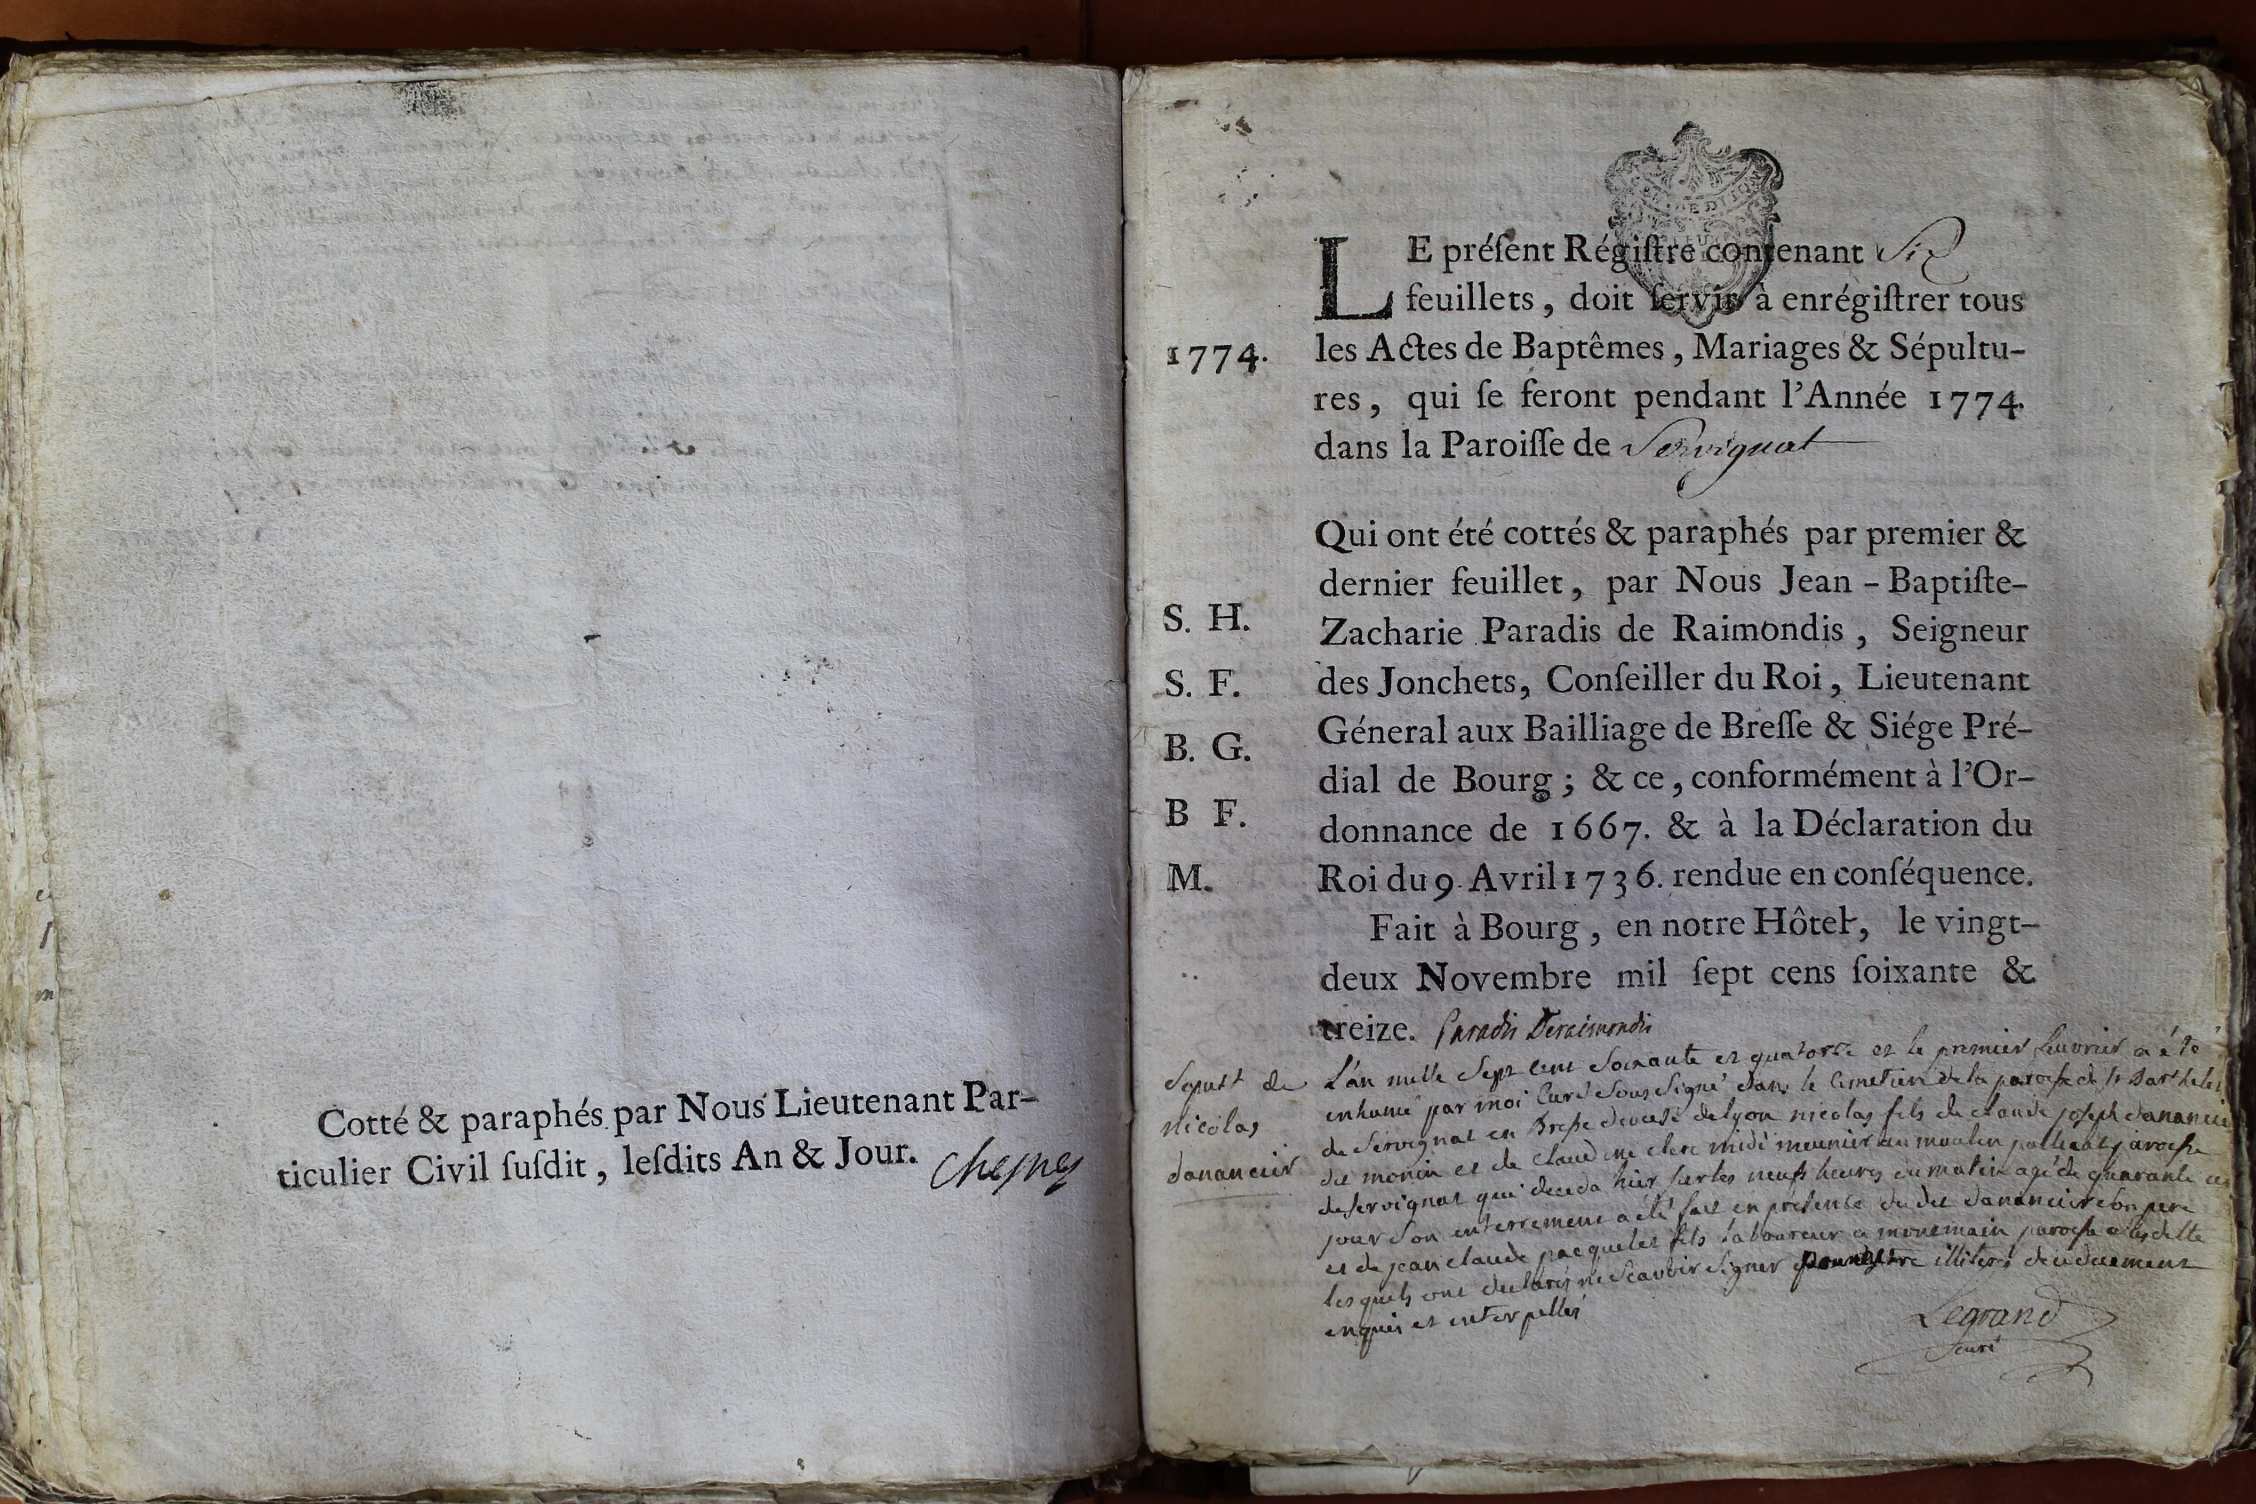 Cotté & paraphés par Nous Lieutenant Par-
ticulier Civil ſuſdit, leſdits An & Jour. Cheſney
LE préſent Régiſtre contenant Six
feuillets, doit ſervir à enrégiſtrer tous
1774. les Actes de Baptêmes, Mariages & Sépultu-
res, qui ſe feront pendant l'Année 1774.
dans la Paroiſſe de Servignat
Qui ont été cottés & paraphés par premier &
dernier feuillet, par Nous Jean-Baptiſte-
S. H. Zacharie Paradis de Raimondis, Seigneur
S. F. des Jonchets, Conſeiller du Roi, Lieutenant
B. G. Géneral aux Bailliage de Breſſe & Siége Pré-
dial de Bourg; & ce, conformément à l'Or-
B F. donnance de 1667. & à la Déclaration du
M. Roi du 9. Avril 1736. rendue en conſéquence.
Fait à Bourg, en notre Hôtel, le vingt-
deux Novembre mil ſept cens ſoixante &
treize. Paradis Deraimondis
Sepult de
nicolas
danancier
L'an mille Sept Cent Soixante et quatorze et le premier feuvrier a été
enhumé par moi Curé Sous Signé dans le Cimetiere de la paroisse de St Barthelei
de Servignat en Bresse diocese de lyon nicolas fils de claude joseph dananciei
du monin et de Claudine clere midi meunier au moulin paroisse
de servignat qui deceda hier sur les neufs heures du matin agé de quarante
jour Son enterrement a été fait en présence du dit dananciei Son pere
et de jean claude pacquelet fils laboureur a monemain paroisse
lesquels ont declarés ne Scavoir Signer pour estre illiterés de ce duement
enquis et interpellés
Legrand
Curé